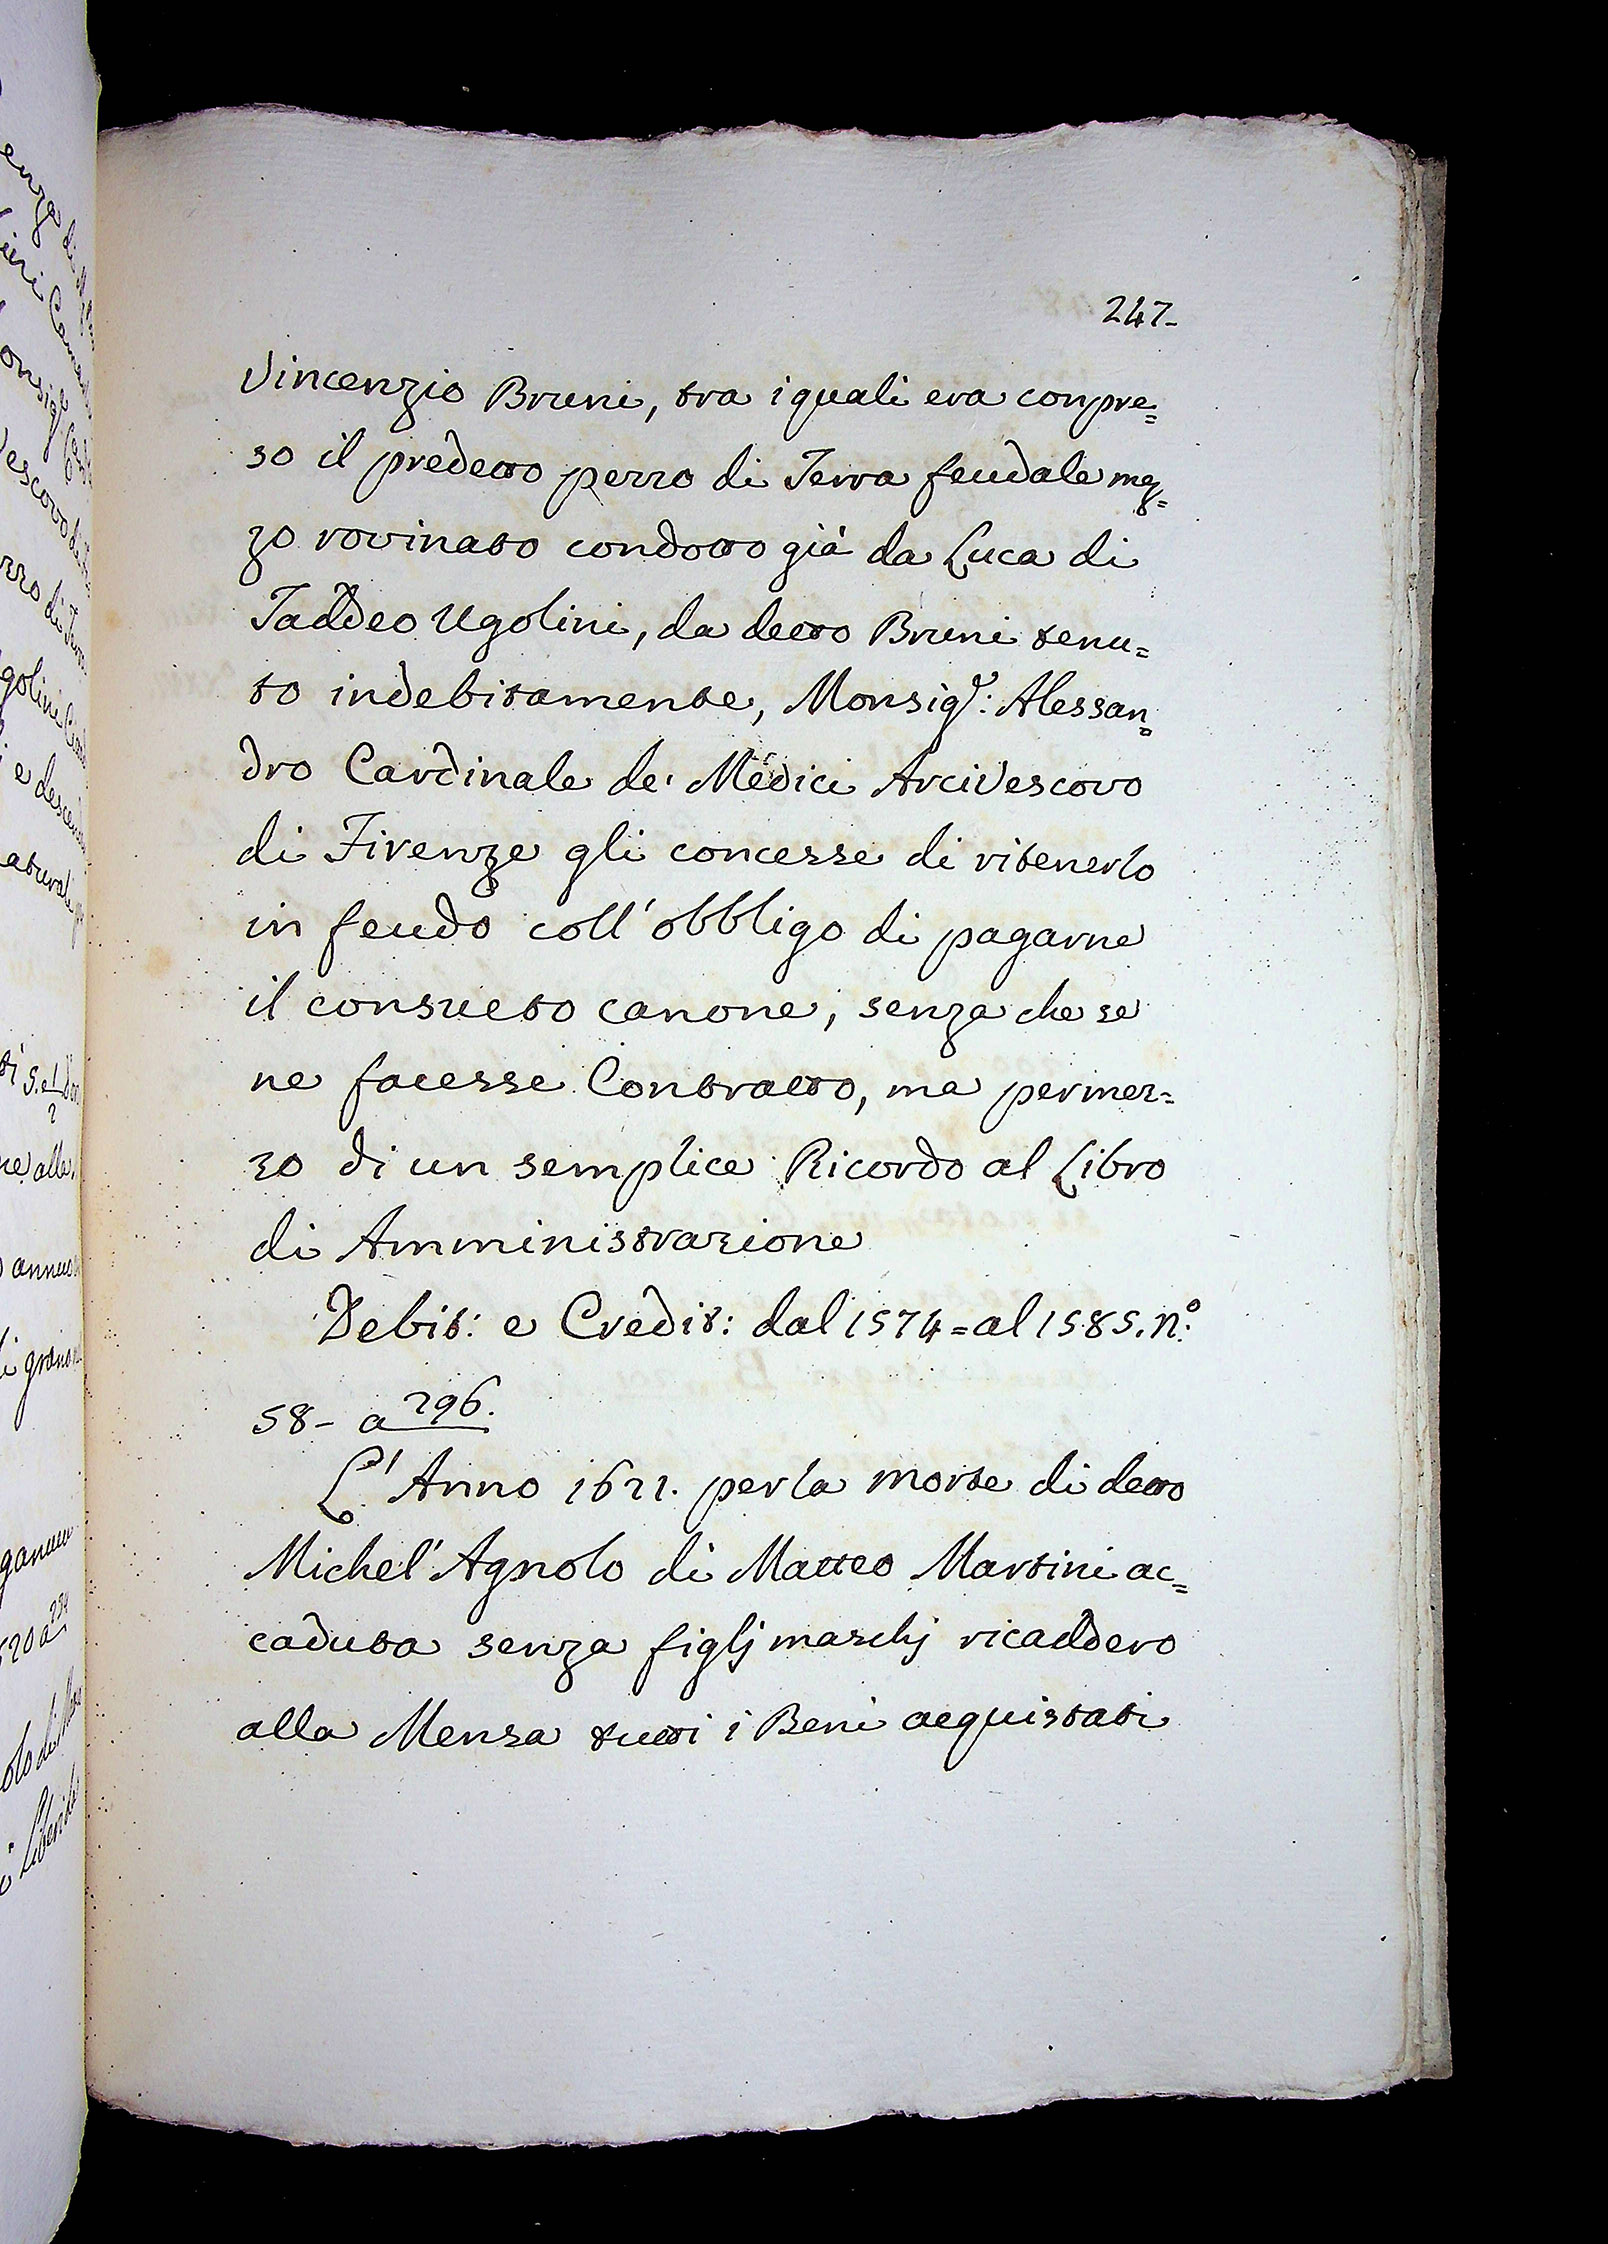 247_
Vincenzio Bruni, tra i quali era conpre=
so il predetto pezzo di Terra feudale mez=
zo rovinato condotto già da Luca di
Taddeo Ugolini, da detto Bruni tenu=
to indebitamente, Monsigr: Alessan=
dro Cardinale de' Medici Arcivescovo
di Firenze gli concesse di ritenerlo
in feudo coll' obbligo di pagarne
il consueto canone, senza che se
ne facesse Contratto, ma per mez=
zo di un semplice Ricordo al Libro
di Amministrazione
Debit: e Credit: dal 1574 = al 1585. n.º
58 - a 296.
L' Anno 1621. per la morte di detto
Michel' Agnolo di Matteo Martini ac=
caduta senza figlj maschj ricaddero
alla Mensa tutti i Beni acquistati